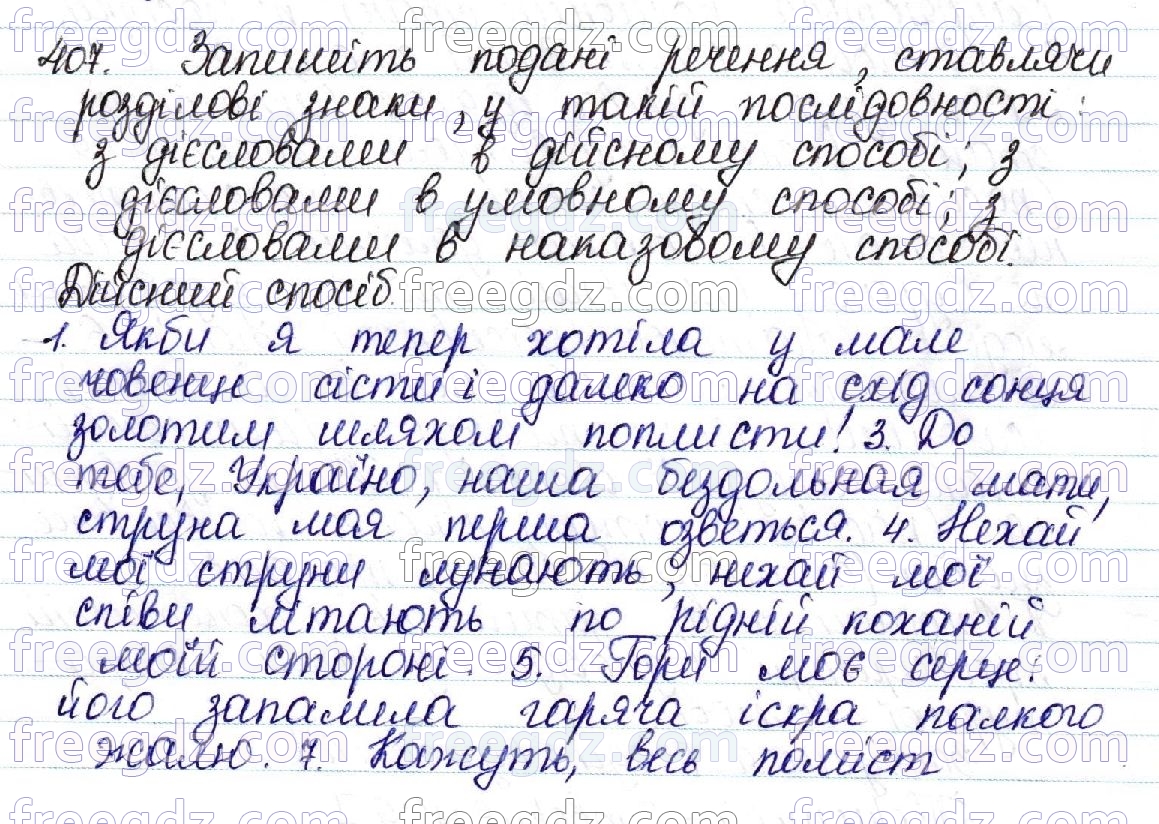 407. Запишіть подані речення, ставлячи
розділові знаки, у такій послідовності:
з дієсловами в дійсному способі; з
дієсловами в умовному способі; з
дієсловами в наказовому способі.
Дійсний спосіб.
1. Якби я тепер хотіла у мале
човенце сісти і далеко на схід сонця
золотим шляхом поплисти! 3. До
тебе, Україно, наша бездольная мати,
струна моя перша озветься. 4. Нехай
мої струни лунають, нехай мої
співи літають по рідній коханій
моїй стороні. 5. Гори моє серце:
його запалила гаряча іскра палкого
жалю. 7. Кажуть, весь полист
freegdz.com